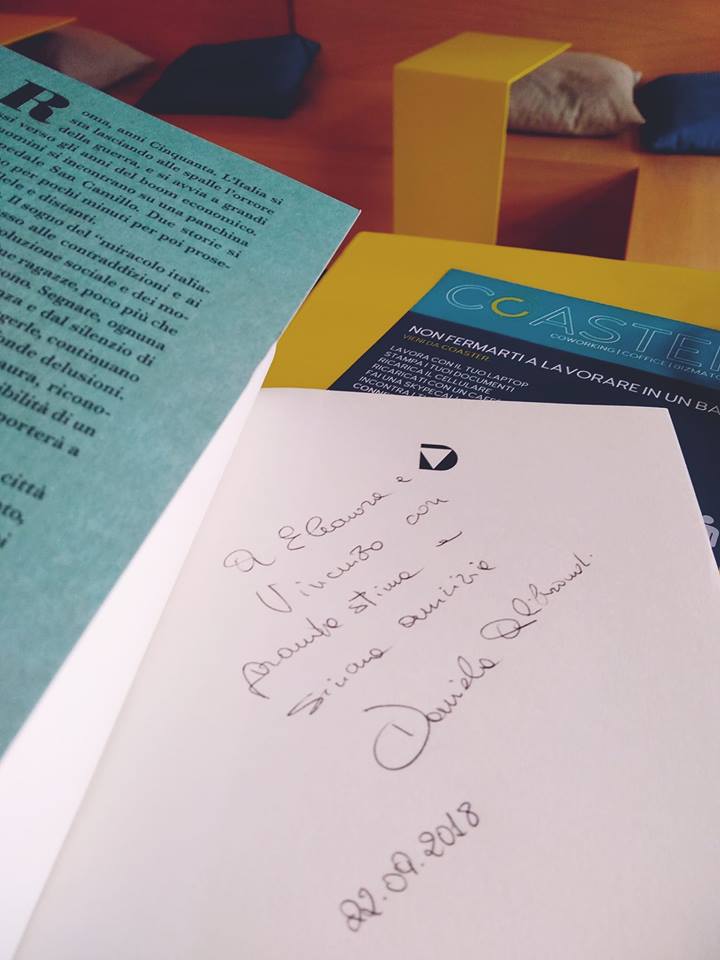 Roma, anni Cinquanta. L'Italia si
sta lasciando alle spalle l'orrore
della guerra, e si avvia a grandi
ssi verso gli anni del boom economico.
uomini si incontrano su una panchina
edale San Camillo. Due storie si
o per pochi minuti per poi prose-
lele e distanti.
Il sogno del "miracolo italia-
sso alle contraddizioni e ai
oluzione sociale e dei mo-
ue ragazze, poco più che
ono. Segnate, ognuna
nza e dal silenzio di
gerle, continuano
onde delusioni.
aura, ricono-
sibilità di un
porterà a
città
oto,
i
COASTER
COWORKING | COFFICE | BIZMAT
NON FERMARTI A LAVORARE IN UN BA
VIENI DA COASTER
LAVORA CON IL TUO LAPTOP
STAMPA I TUOI DOCUMENTI
RICARICA IL CELLULARE
RICARICATI CON UN CAFFÈ
FAI UNA SKYPECALL
INCONTRA
D
A Eleonora e
Vincenzo con
grande stima e
sincera amicizia
Daniela Alibrandi
22.09.2018